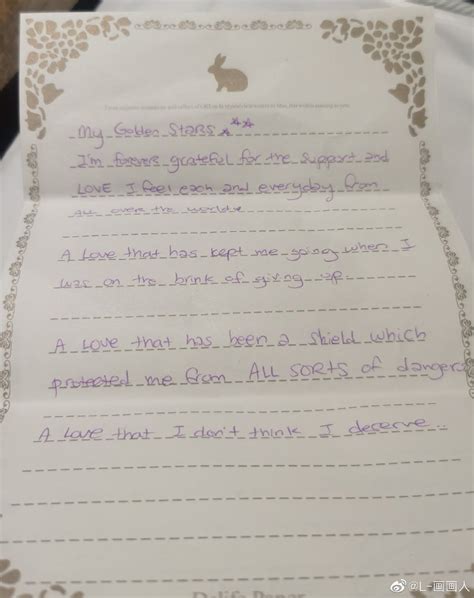 My Golden Stars
I'm forever grateful for the support and
LOVE I feel each and everyday from
all over the world
A Love that has kept me going when I
was on the brink of giving up
A Love that has been a shield which
protected me from ALL SORTS of dangers
A Love that I don't think I deserve..
@L-画画人